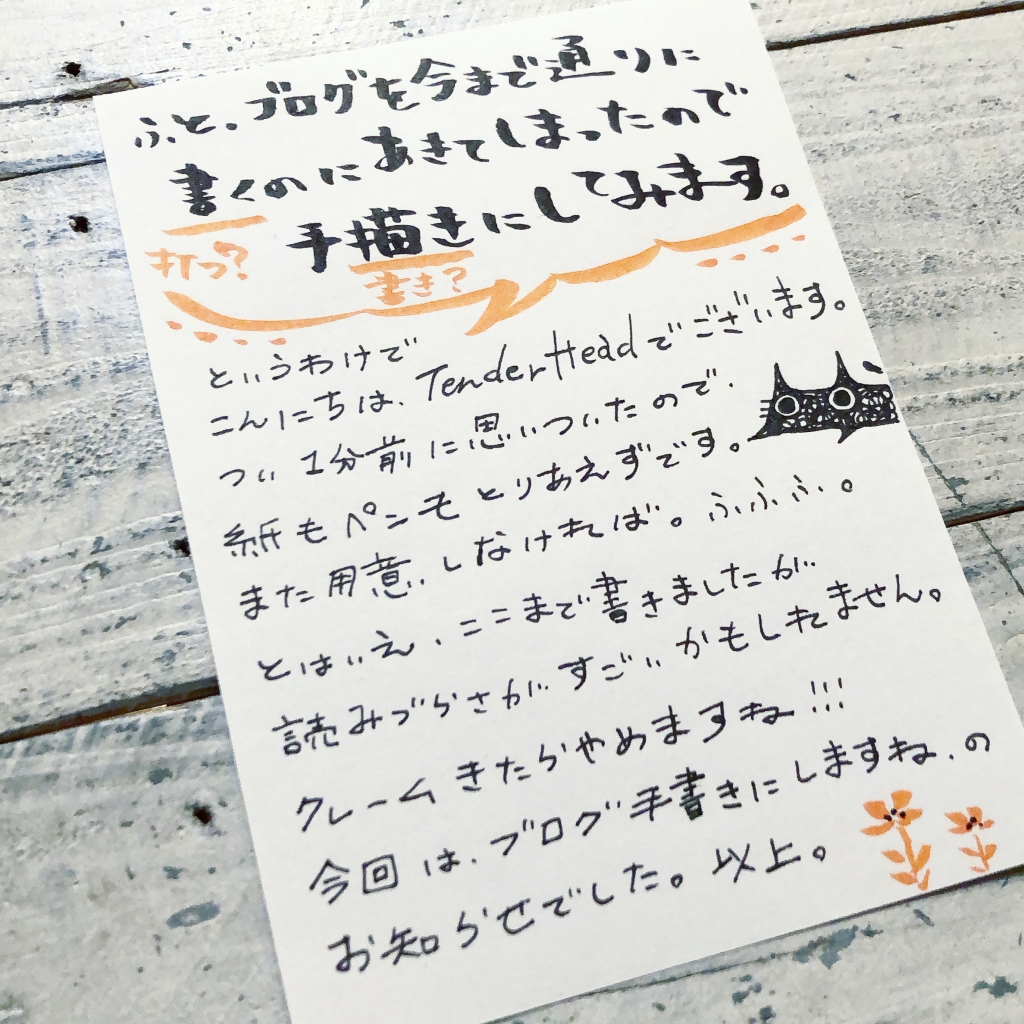 ふと、ブログを今まで通りに
書くのにあきてしまったので
手描きにしてみます。
打つ?
書き?
というわけで
こんにちは、TenderHeadでございます。
つい1分前に思いついたので、
紙もペンもとりあえずです。
また用意しなければ。ふふふ。
とはいえ、ここまで書きましたが
読みづらさがすごいかもしれません。
クレームきたらやめますね!!!
今回は、ブログ手書きにしますね、の
お知らせでした。以上。